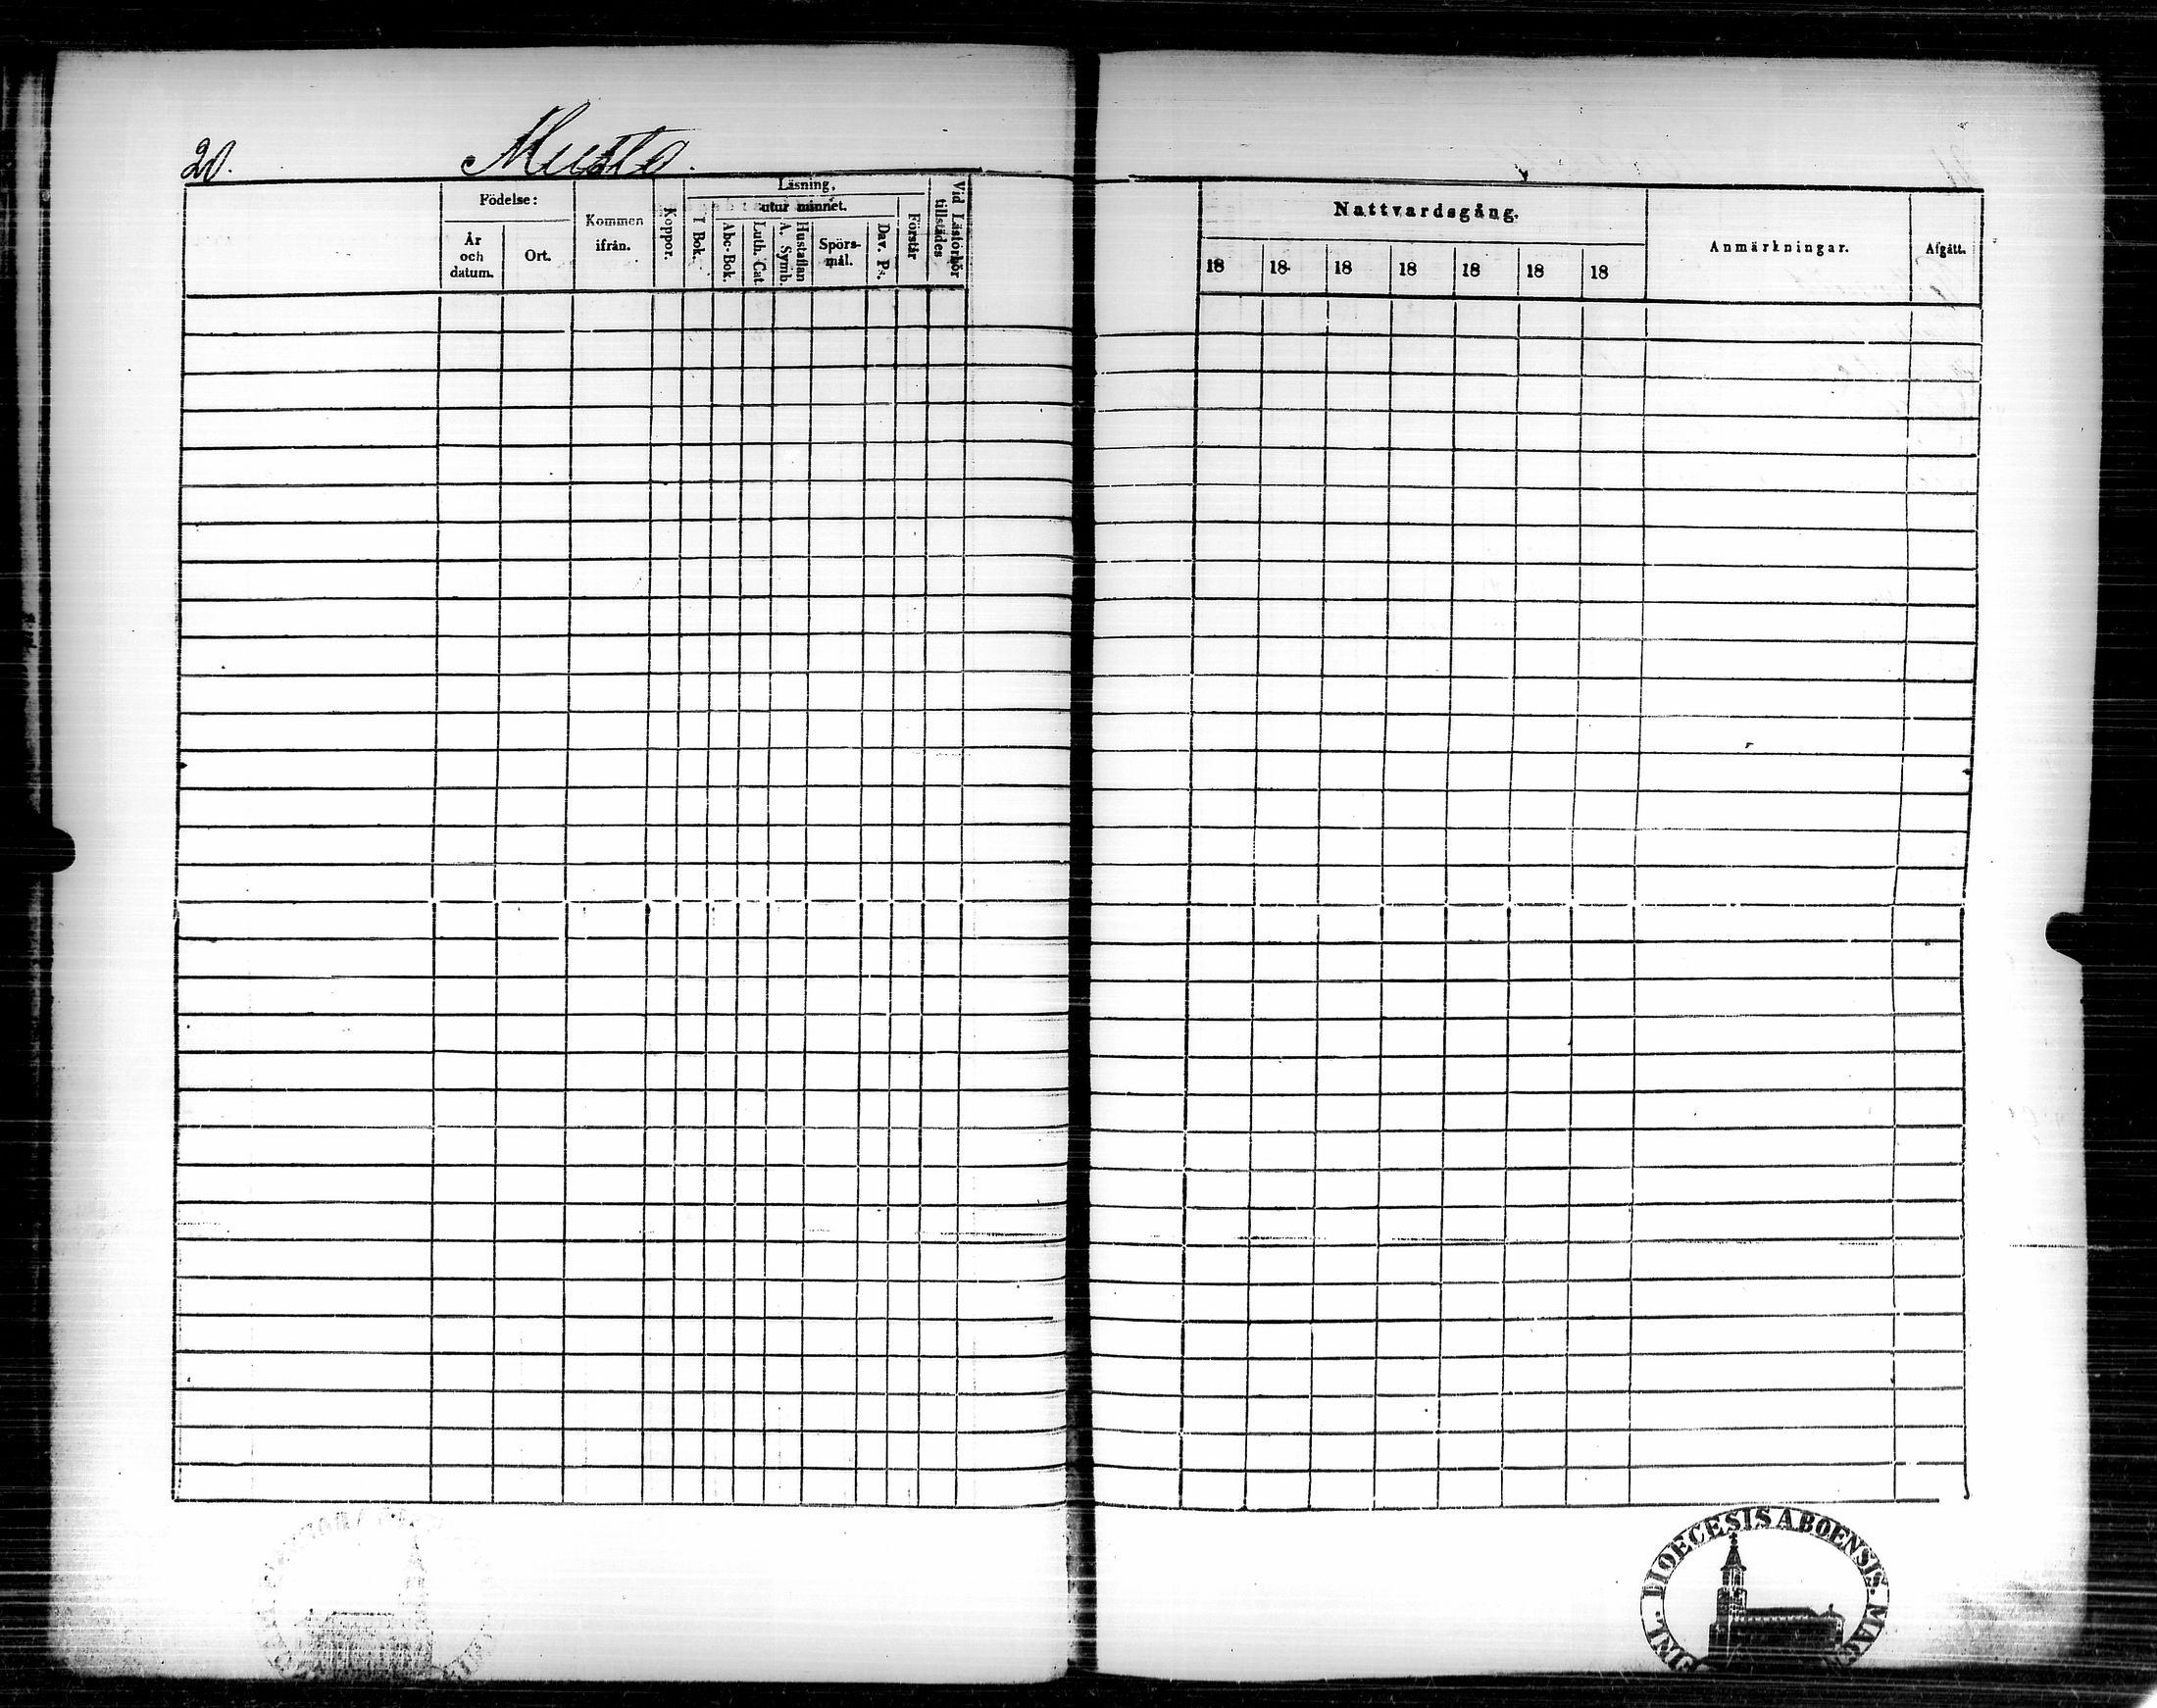 20.
Musta.
Födelse:
År
och
datum.
Ort.
Kommen
ifrån.
Koppor.
Läsning,
I Bok.
utur minnet.
Abc-Bok.
Luth. Cat.
Hustaflan
A. Symb.
Spörs-
mål.
Dav. Ps.
Förstår
Vid Läsförhör
tillstädes
Nattvardsgång.
18 18 18 18 18 18 18
Anmärkningar.
Afgått.
DIOECESIS ABOENSIS.